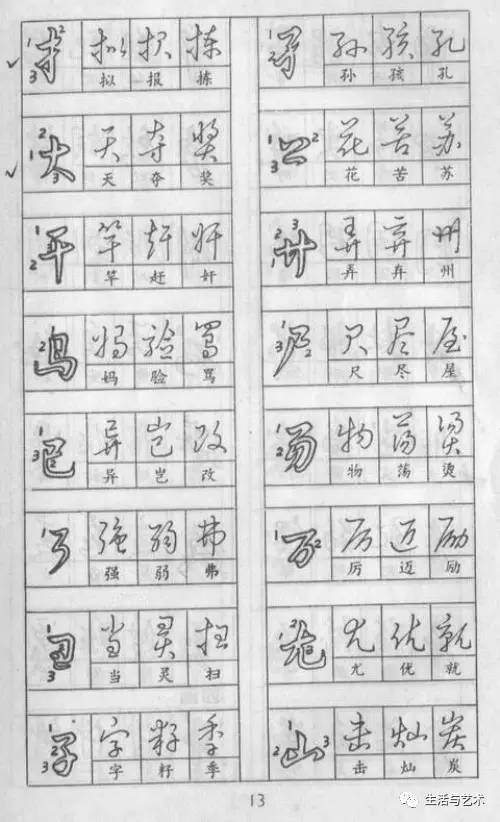 拟 报 拣 孙 孩 孔
拟 报 拣 孙 孩 孔
大 天 夺 奖 花 苦 苏
天 夺 奖 花 苦 苏
竿 赶 奸 弄 弃 州
竿 赶 奸 弄 弃 州
妈 验 骂 尺 尽 屋
妈 验 骂 尺 尽 屋
异 岂 改 物 荡 烫
异 岂 改 物 荡 烫
强 弱 弗 厉 迈 励
强 弱 弗 厉 迈 励
当 灵 扫 尤 优 就
当 灵 扫 尤 优 就
字 籽 季 山 击 灿 炭
字 籽 季 击 灿 炭
13
生活与艺术